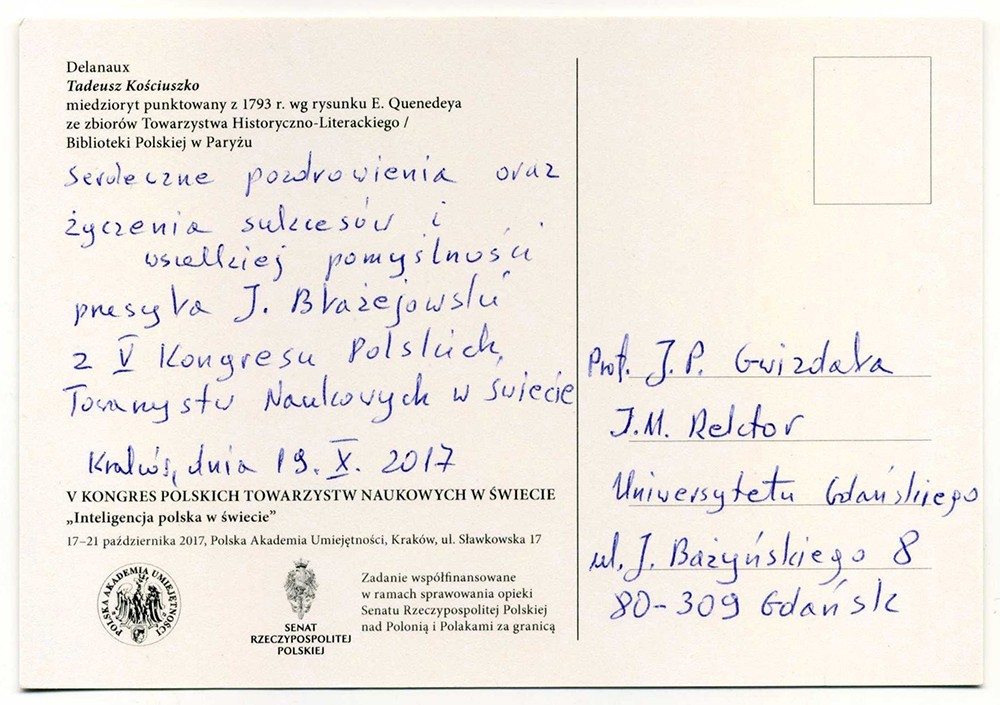 Delanaux
Tadeusz Kościuszko
miedzioryt punktowany z 1793 r. wg rysunku E. Quenedeya
ze zbiorów Towarzystwa Historyczno-Literackiego /
Biblioteki Polskiej w Paryżu
Serdeczne pozdrowienia oraz
życzenia sukcesów i
wszelkiej pomyślności
przesyła J. Błażejowski
z V Kongresu Polskich
Towarzystw Naukowych w Świecie
Kraków, dnia 19. X. 2017
V KONGRES POLSKICH TOWARZYSTW NAUKOWYCH W ŚWIECIE
„Inteligencja polska w świecie”
17–21 października 2017, Polska Akademia Umiejętności, Kraków, ul. Sławkowska 17
POLSKA AKADEMIA UMIEJĘTNOŚCI
SENAT
RZECZYPOSPOLITEJ
POLSKIEJ
Zadanie współfinansowane
w ramach sprawowania opieki
Senatu Rzeczypospolitej Polskiej
nad Polonią i Polakami za granicą
Prof. J.P. Gwizdała
J.M. Rektor
Uniwersytetu Gdańskiego
ul. J. Bażyńskiego 8
80-309 Gdańsk